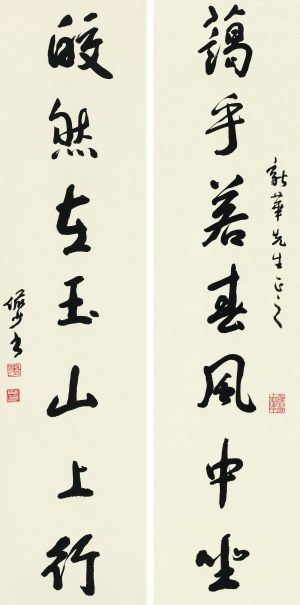 藹乎若春風中坐
新華先生正之
皎然在玉山上行